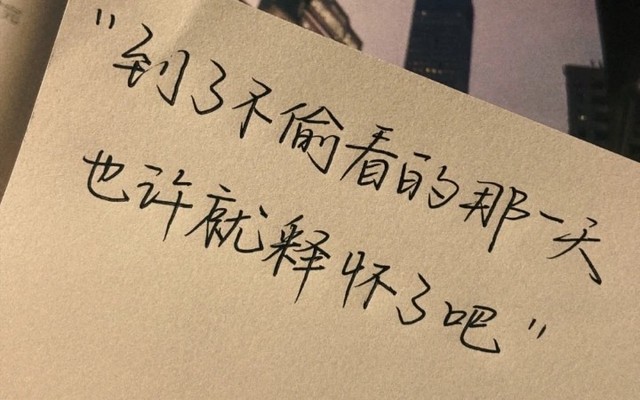 "到了不偷看的那一天
也许就释怀了吧"